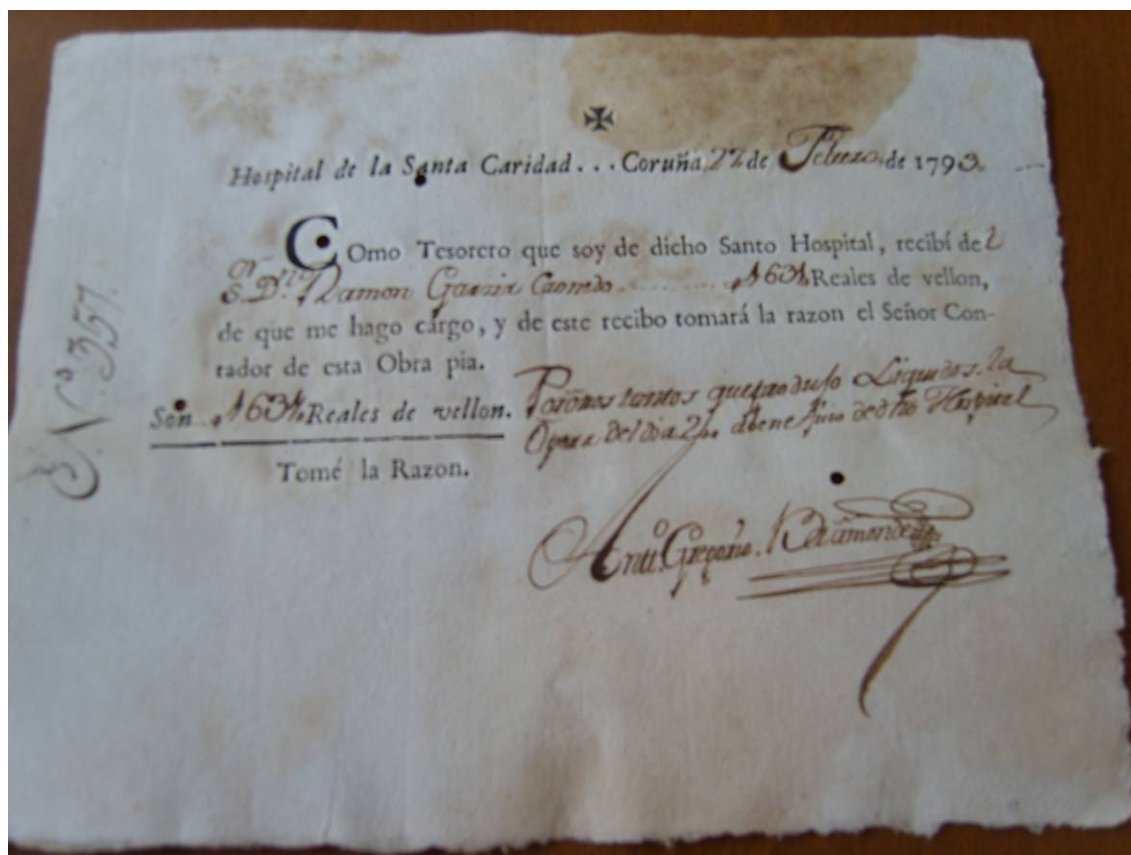 Hospital de la Santa Caridad... Coruña 22 de Febrero de 1793.
COmo Tesorero que soy de dicho Santo Hospital, recibí del
Sn. Dn. Ramon Garzia Reales de vellon,
de que me hago cargo, y de este recibo tomará la razon el Señor Con-
tador de esta Obra pia.
Son Reales de vellon.
Por otros tantos que produjo Liquidos la
Opera del dia a benefizio de dho Hospital
Tomé la Razon.
Anto. Gregorio
No. 357.